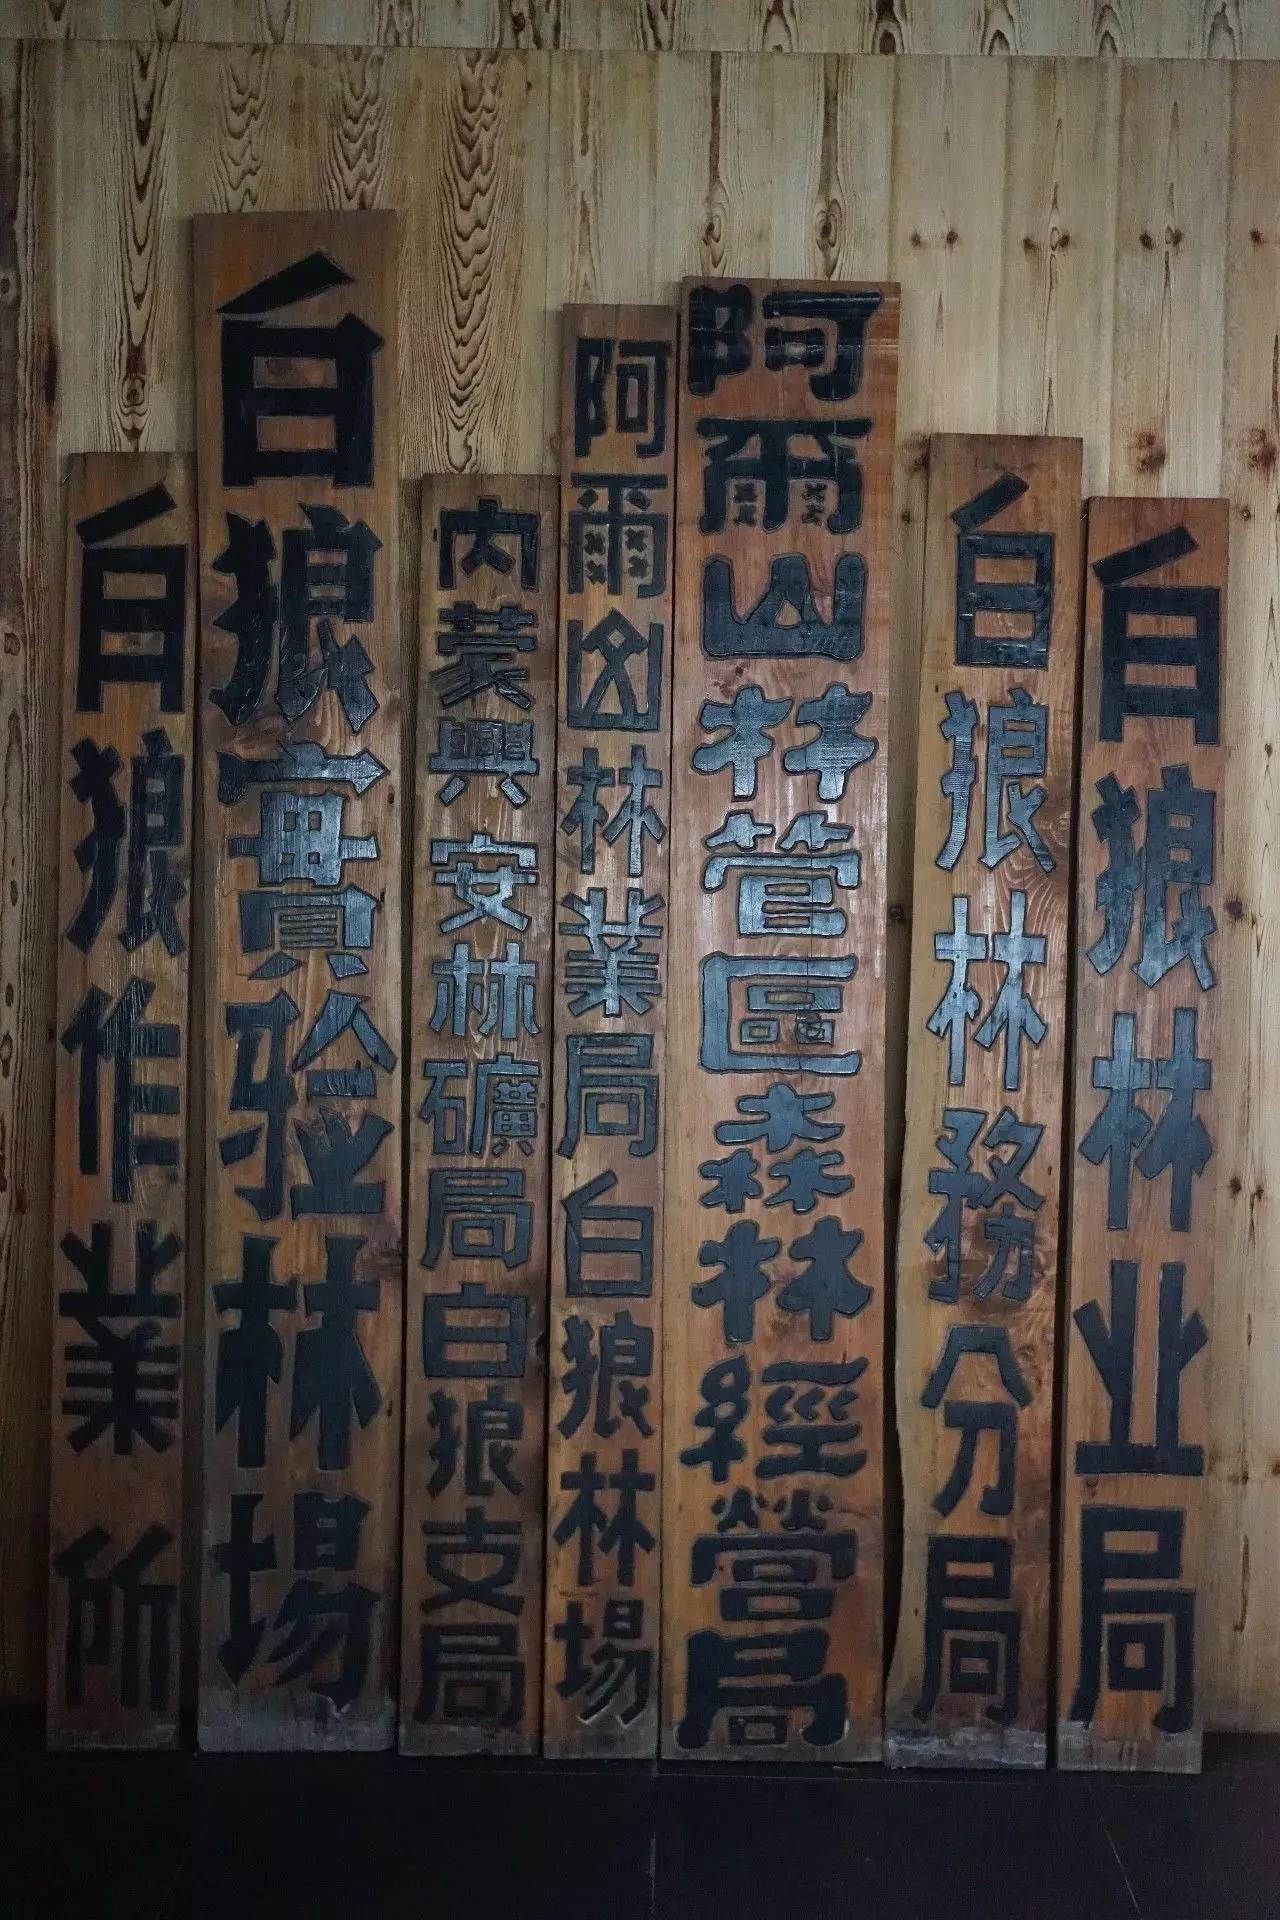 白狼作業所
白狼實验林場
内蒙興安林礦局白狼支局
阿爾山林業局白狼林場
阿爾山林管區森林經營局
白狼林務分局
白狼林业局